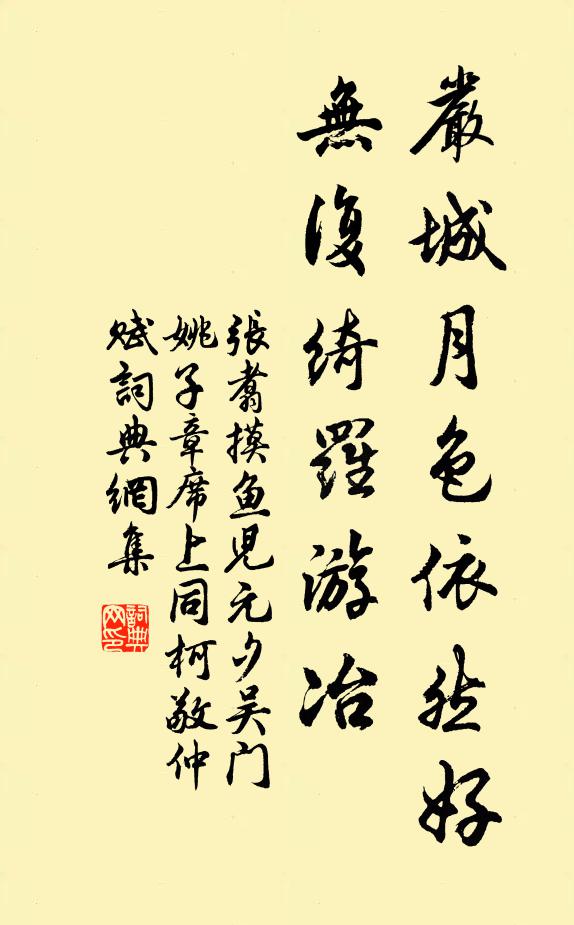 嚴城月色依然好
無復綺羅游冶
張翥摸魚兒元夕吴门
姚子章席上同柯敬仲
赋詞典網集
詞典网印